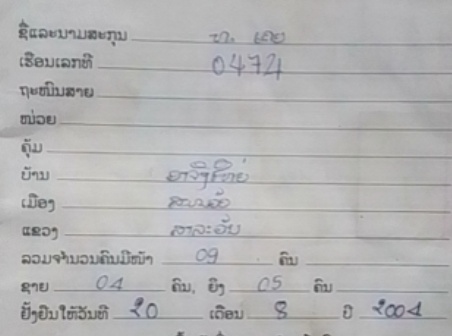 ຊື່ແລະນາມສະກຸນ ທ. ເຄຍ
ເຮືອນເລກທີ 0474
ຖະໜົນສາຍ
ໜ່ວຍ
ຄຸ້ມ
ບ້ານ
ເມືອງ
ແຂວງ ສາລະວັນ
ລວມຈຳນວນຄົນມີໜ້າ 09 ຄົນ
ຊາຍ 04 ຄົນ, ຍິງ 05 ຄົນ
ຢັ້ງຢືນໃຫ້ວັນທີ 20 ເດືອນ 8 ປີ 2004